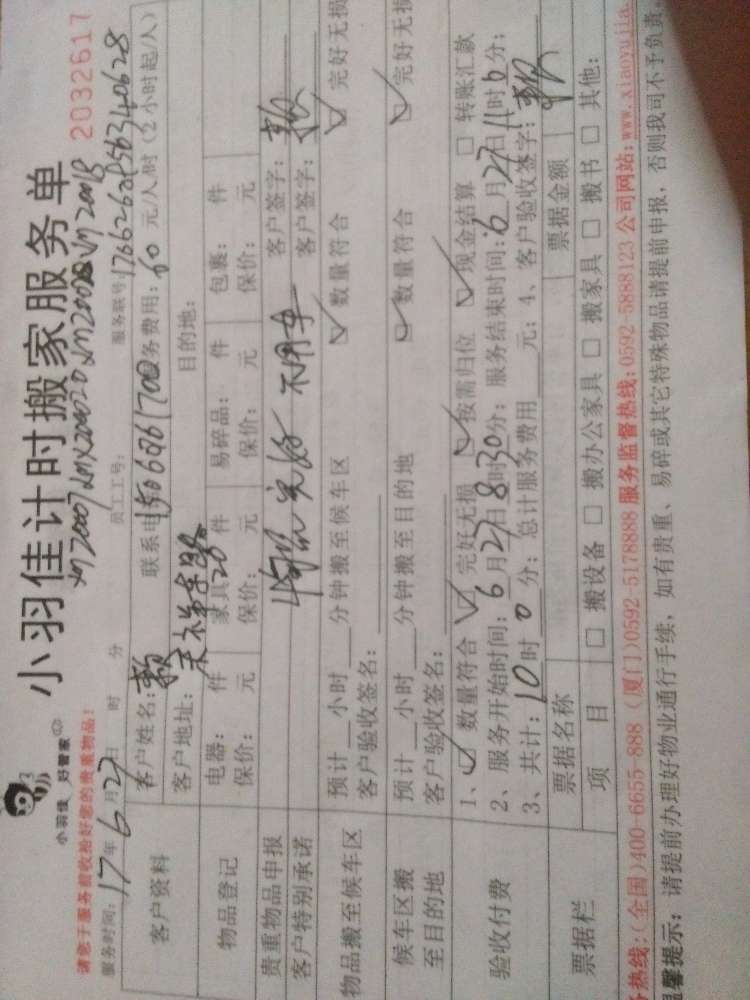 小羽佳 好管家
小羽佳计时搬家服务单
2032617
请您于服务前收拾好您的贵重物品!
服务时间: 17年6月27日 时 分 员工工号: 服务联号:
客户资料 客户姓名: 联系电 务费用: 60 元/人/时 (2小时起/人)
客户地址: 目的地:
物品登记 电器: 件 家具 20 件 易碎品: 件 包裹: 件
保价: 元 保价: 元 保价: 元 保价: 元
贵重物品申报 完好 不用车 客户签字:
客户特别承诺 客户签字:
物品搬至候车区 预计__小时__分钟搬至候车区 数量符合 完好无损
客户验收签名:
候车区搬至目的地 预计__小时__分钟搬至目的地 数量符合 完好无损
客户验收签名:
验收付费 1、 数量符合 完好无损 按需归位 现金结算 转账汇款
2、服务开始时间: 6月27日8时30分; 服务结束时间: 6月27日11时6分;
3、共计: 10时0分; 总计服务费用 元; 4、客户验收签字:
票据栏 票据名称 票据金额
项目 搬设备 搬办公家具 搬家具 搬书 其他:
务热线:(全国)400-6655-888 (厦门)0592-5178888 服务监督热线: 0592-5888123 公司网站: www.xiaoyujia.
温馨提示: 请提前办理好物业通行手续, 如有贵重、易碎或其它特殊物品请提前申报, 否则我司不予负责,